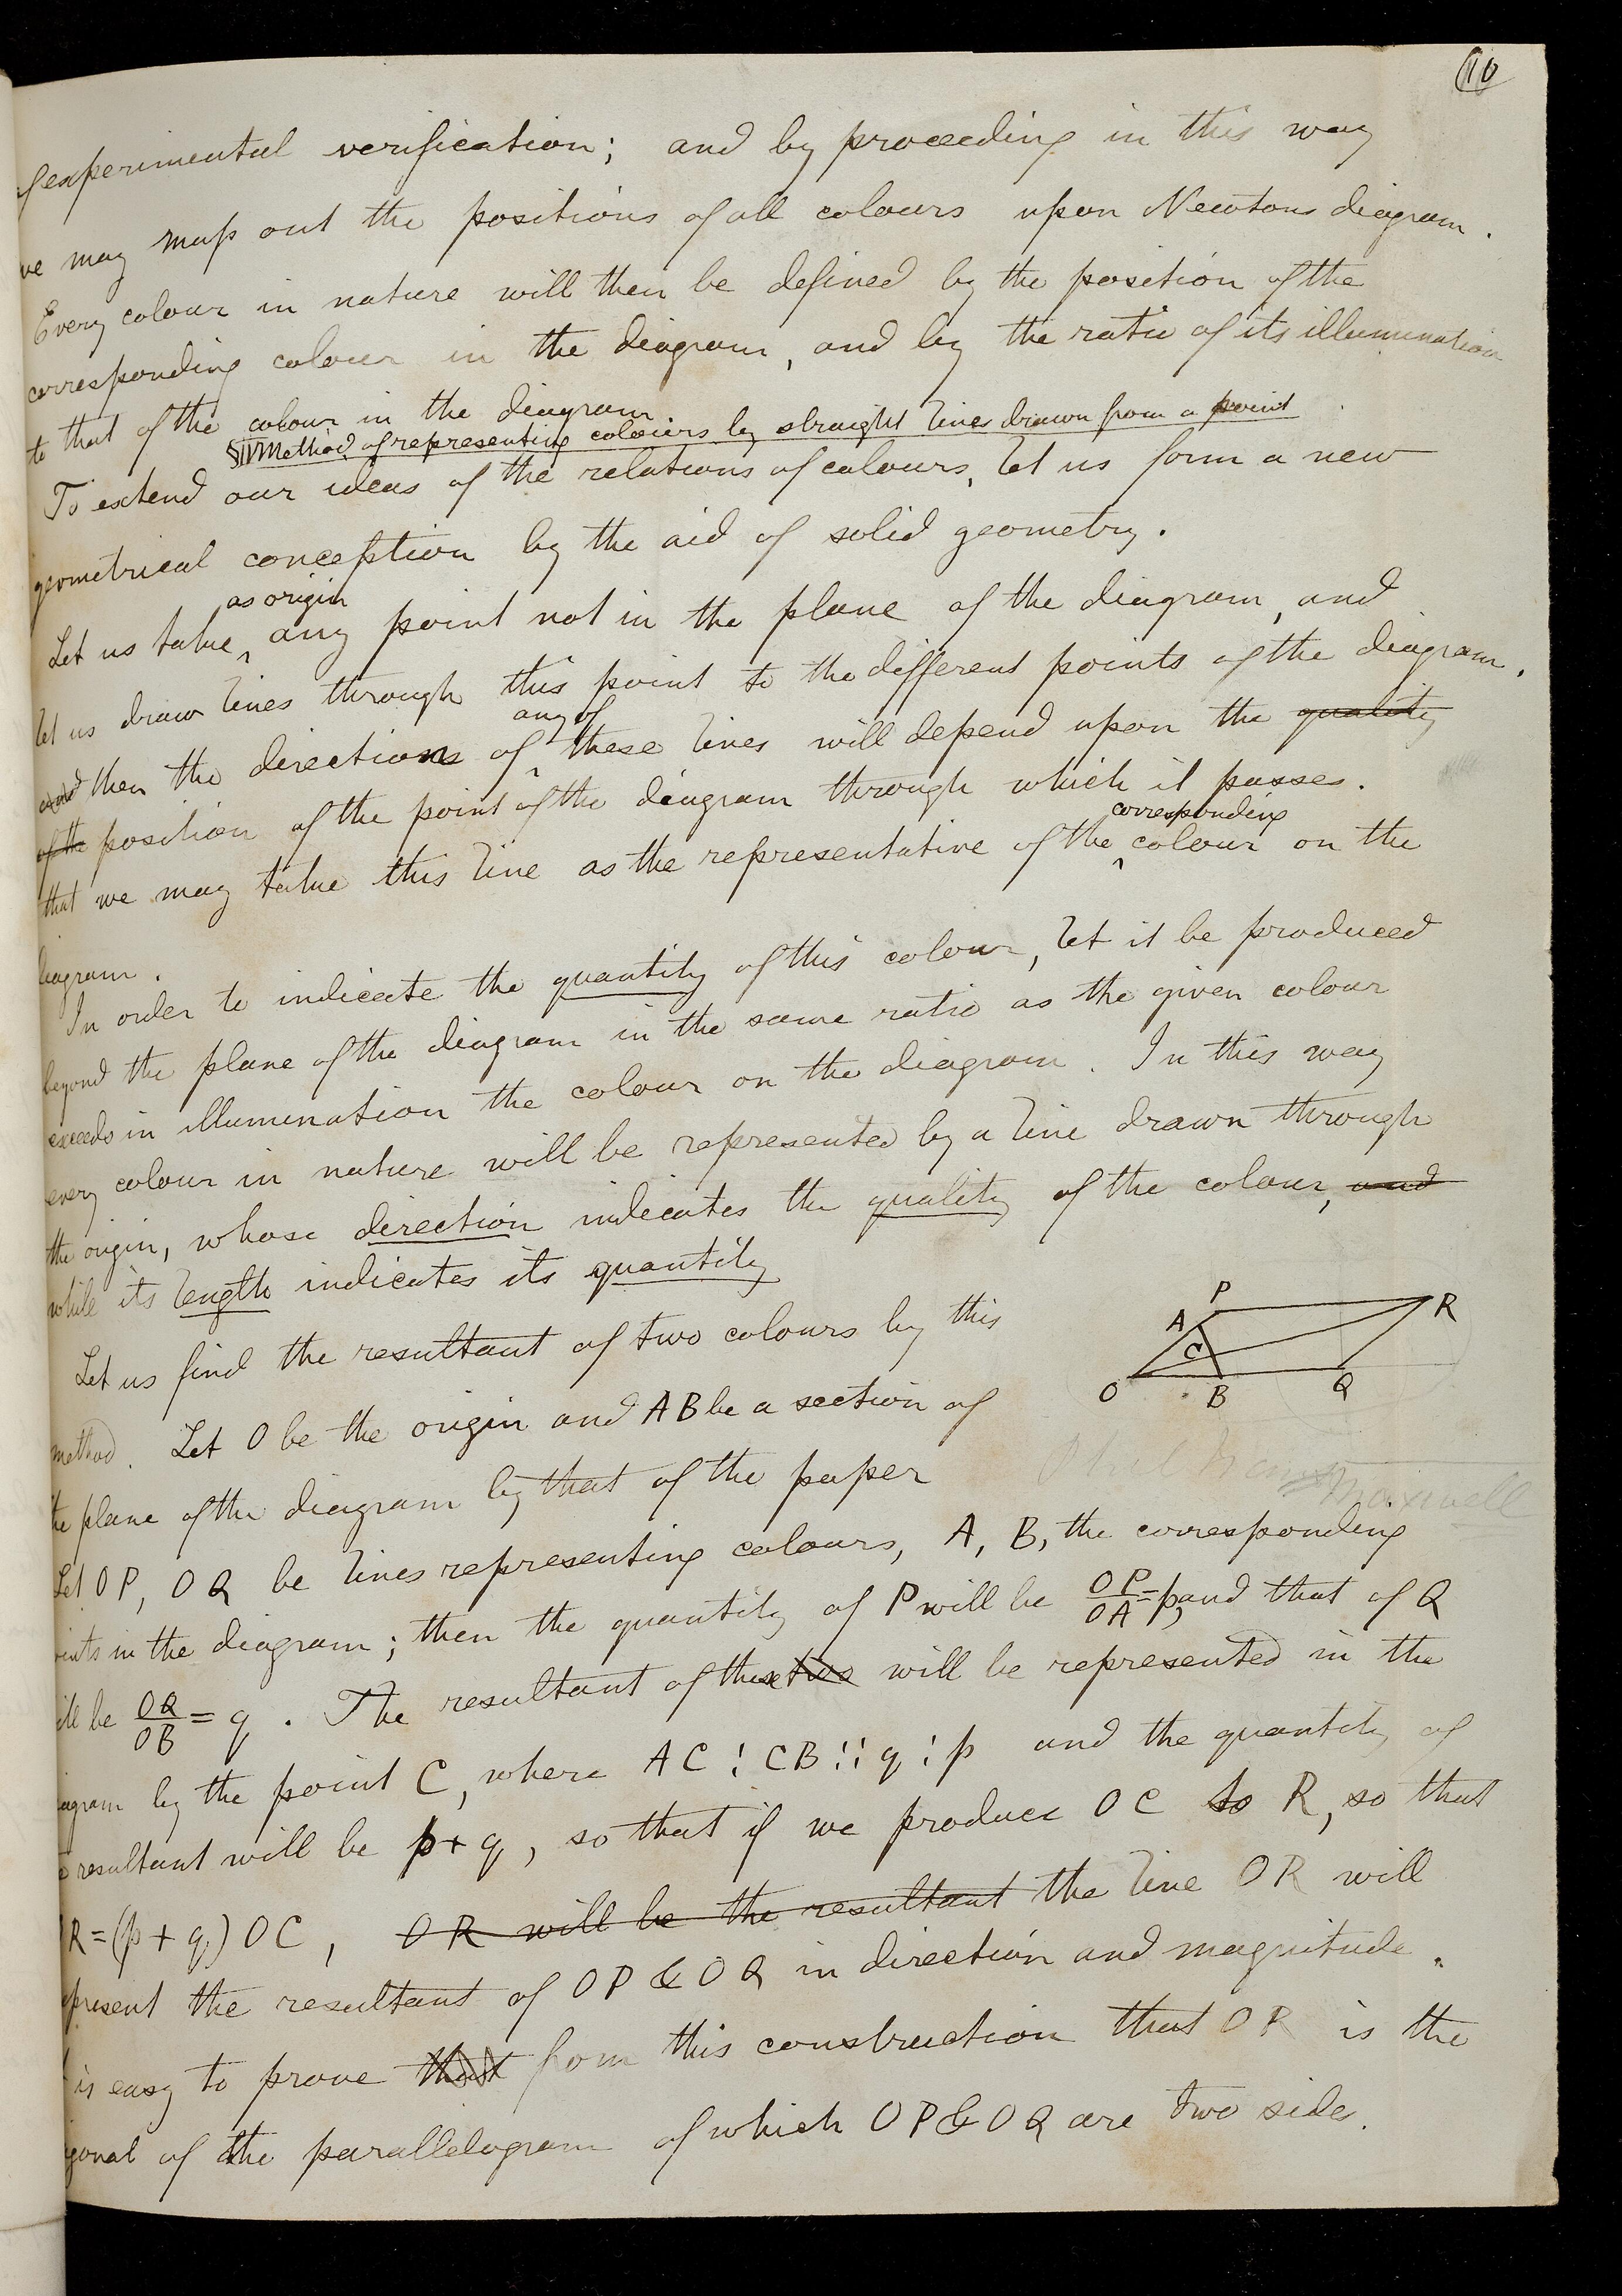 10
of experimental verification; and by proceeding in this way
we may map out the positions of all colours upon Newtons diagram.
Every colour in nature will then be defined by the position of the
corresponding colour in the diagram, and by the ratio of its illumination
to that of the colour in the diagram.
§III Method of representing colours by straight lines drawn from a point
To extend our ideas of the relations of colours, let us form a new
geometrical conception by the aid of solid geometry.
as origin
Let us take any point not in the plane of the diagram, and
let us draw lines through this point to the different points of the diagram.
any of
and then the directions of these lines will depend upon the quality
of the position of the point of the diagram through which it passes.
corresponding
that we may take this line as the representative of the colour on the
diagram.
In order to indicate the quantity of this colour, let it be produced
beyond the plane of the diagram in the same ratio as the given colour
exceeds in illumination the colour on the diagram. In this way
every colour in nature will be represented by a line drawn through
the origin, whose direction indicates the quality of the colour, and
while its length indicates its quantity
Let us find the resultant of two colours by this
method. Let O be the origin and AB be a section of
the plane of the diagram by that of the paper
P
A
R
C
O
B
Q
Maxwell
Let OP, OQ be lines representing colours, A, B, the corresponding
oints in the diagram; then the quantity of P will be OP/OA = p, and that of Q
ill be OQ/OB = q. The resultant of these two will be represented in the
agram by the point C, where AC : CB :: q : p and the quantity of
e resultant will be p + q, so that if we produce OC to R, so that
OR = (p + q) OC, OR will be the resultant the line OR will
epresent the resultant of OP & OQ in direction and magnitude.
t is easy to prove that from this construction that OR is the
gonal of the parallelogram of which OP & OQ are two sides.